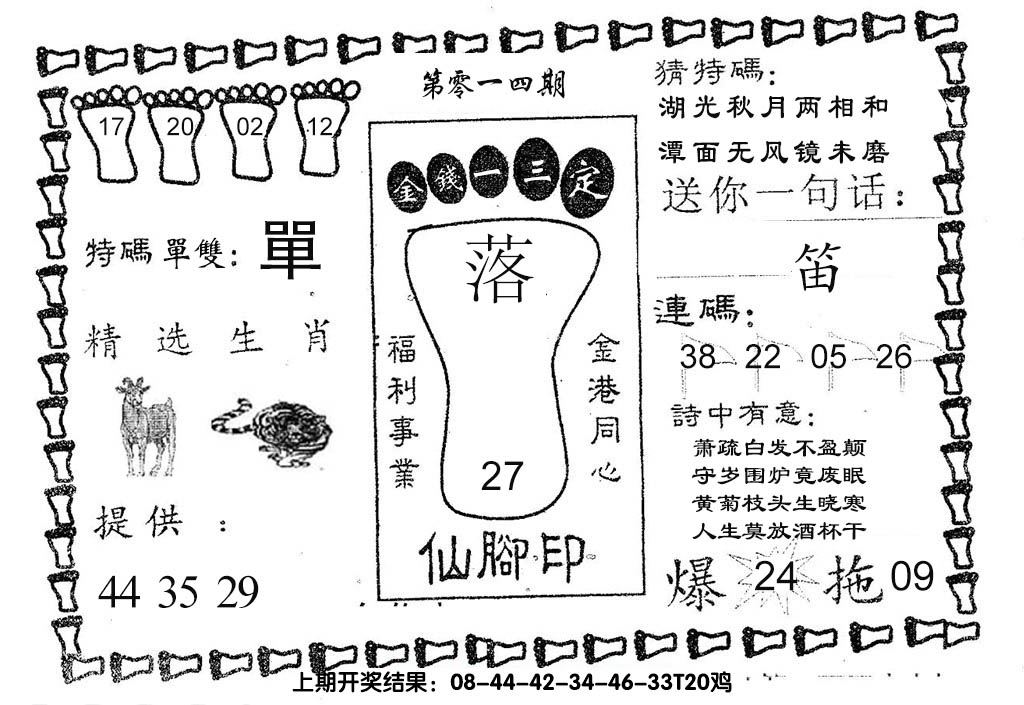 第零一四期
17 20 02 12
特碼單雙: 單
精选生肖
提供:
44 35 29
金錢一三定
落
福利事業
金港同心
27
仙腳印
猜特碼:
湖光秋月两相和
潭面无风镜未磨
送你一句话:
笛
連碼:
38 22 05 26
詩中有意:
萧疏白发不盈颠
守岁围炉竟废眠
黄菊枝头生晓寒
人生莫放酒杯干
爆 24 拖 09
上期开奖结果：08-44-42-34-46-33T20鸡